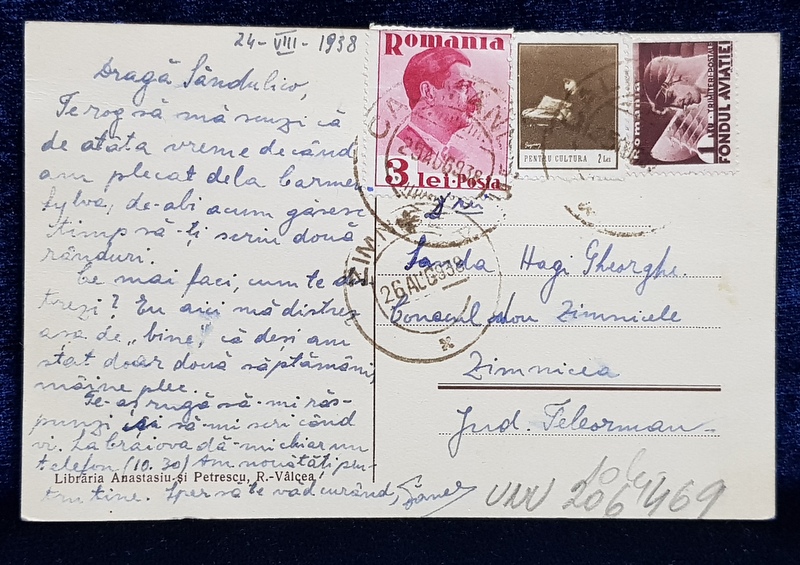 24-VIII-1938
Dragă SănduLico,
Te rog să mă scuzi că
de atâta vreme decând
am plecat dela Carmen
Sylva, de-abi acum găsesc
timp să-ți scriu două
rânduri.
Ce mai faci, cum te dis-
trezi? Eu aici mă distrez
așa de „bine", că deși am
stat doar două săptămâni,
mâine plec.
Te-aș rugă să-mi răs-
punzi și să-mi scri când
vi. La Craiova dă-mi chiar un
telefon (10.30) Am noutăți pen-
tru tine. Sper să te văd curând,
Librăria Anastasiu-și Petrescu, R.-Vâlcea
Romania
3 lei·Posta
PENTRU CULTURA 2 Lei
Romania
1 LEU
FONDUL AVIAȚIEI
25 AUG 938
ZIMN
26 AUG 938
Sanda Hagi Gheorghe
Zimnicea
Jud Teleorman
206469